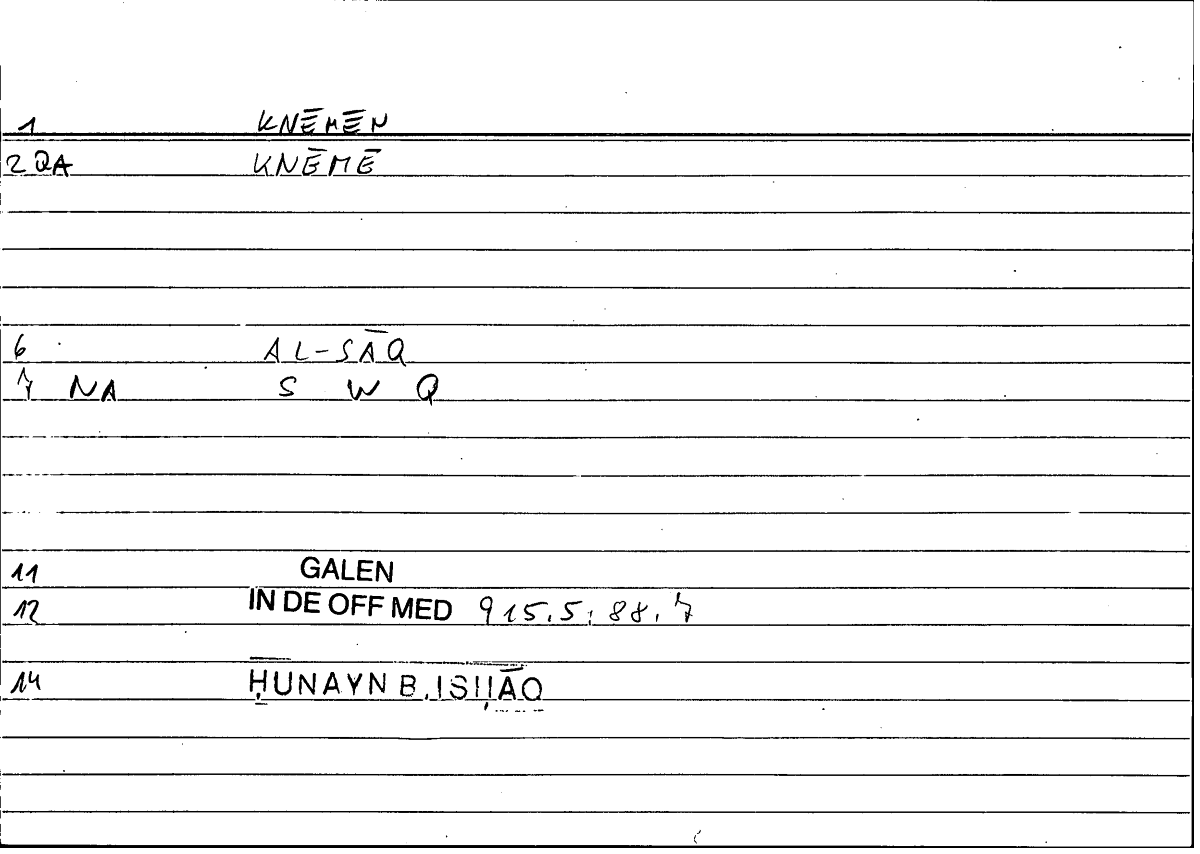 1 KNĒMĒN
2 QA KNĒMĒ
6 AL-SĀQ
7 NA S W Q
11 GALEN
12 IN DE OFF MED 915.5; 88.7
14 ḤUNAYN B. ISḤĀQ